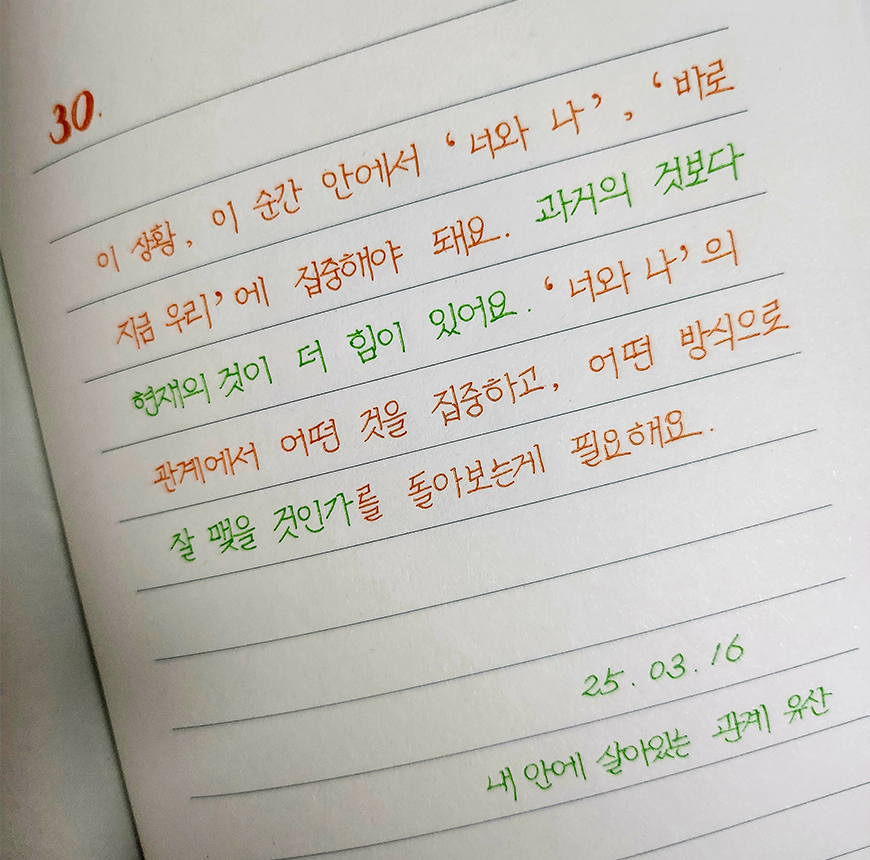 30.
이 상황, 이 순간 안에서 ‘너와 나’, ‘바로
지금 우리’에 집중해야 돼요. 과거의 것보다
현재의 것이 더 힘이 있어요. ‘너와 나’의
관계에서 어떤 것을 집중하고, 어떤 방식으로
잘 맺을 것인가를 돌아보는게 필요해요.
25.03.16
내 안에 살아있는 관계 유산